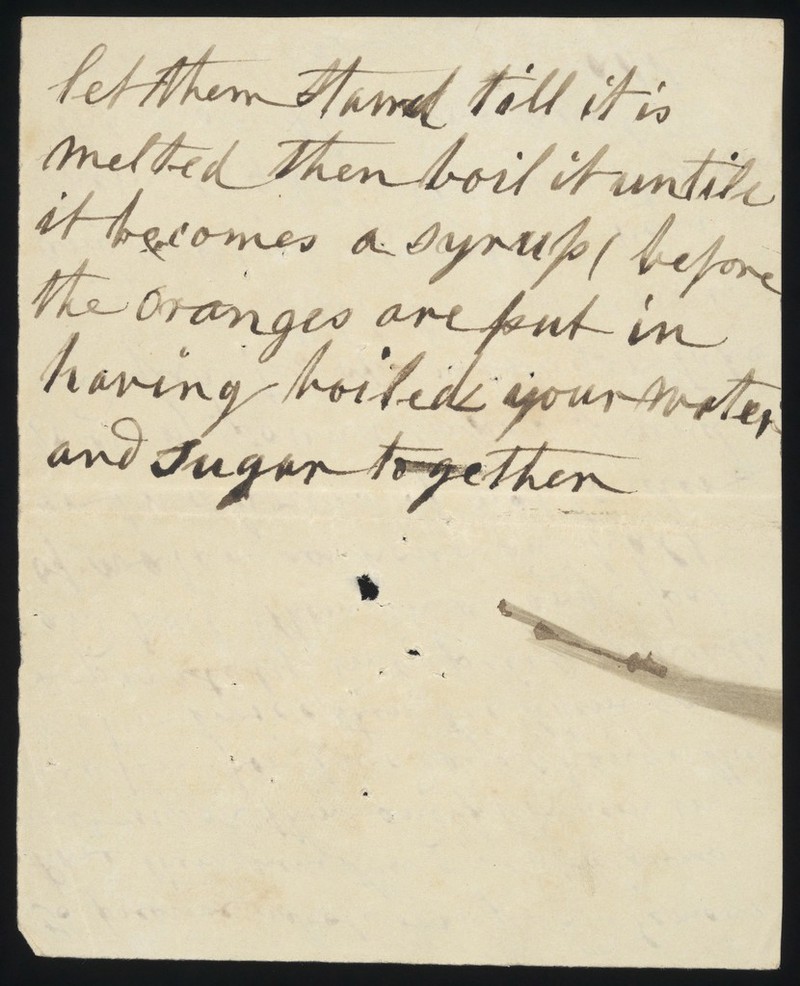 let them stand till it is
melted then boil it untile
it becomes a syrup ( before
the oranges are put in
having boiled your water
and sugar together